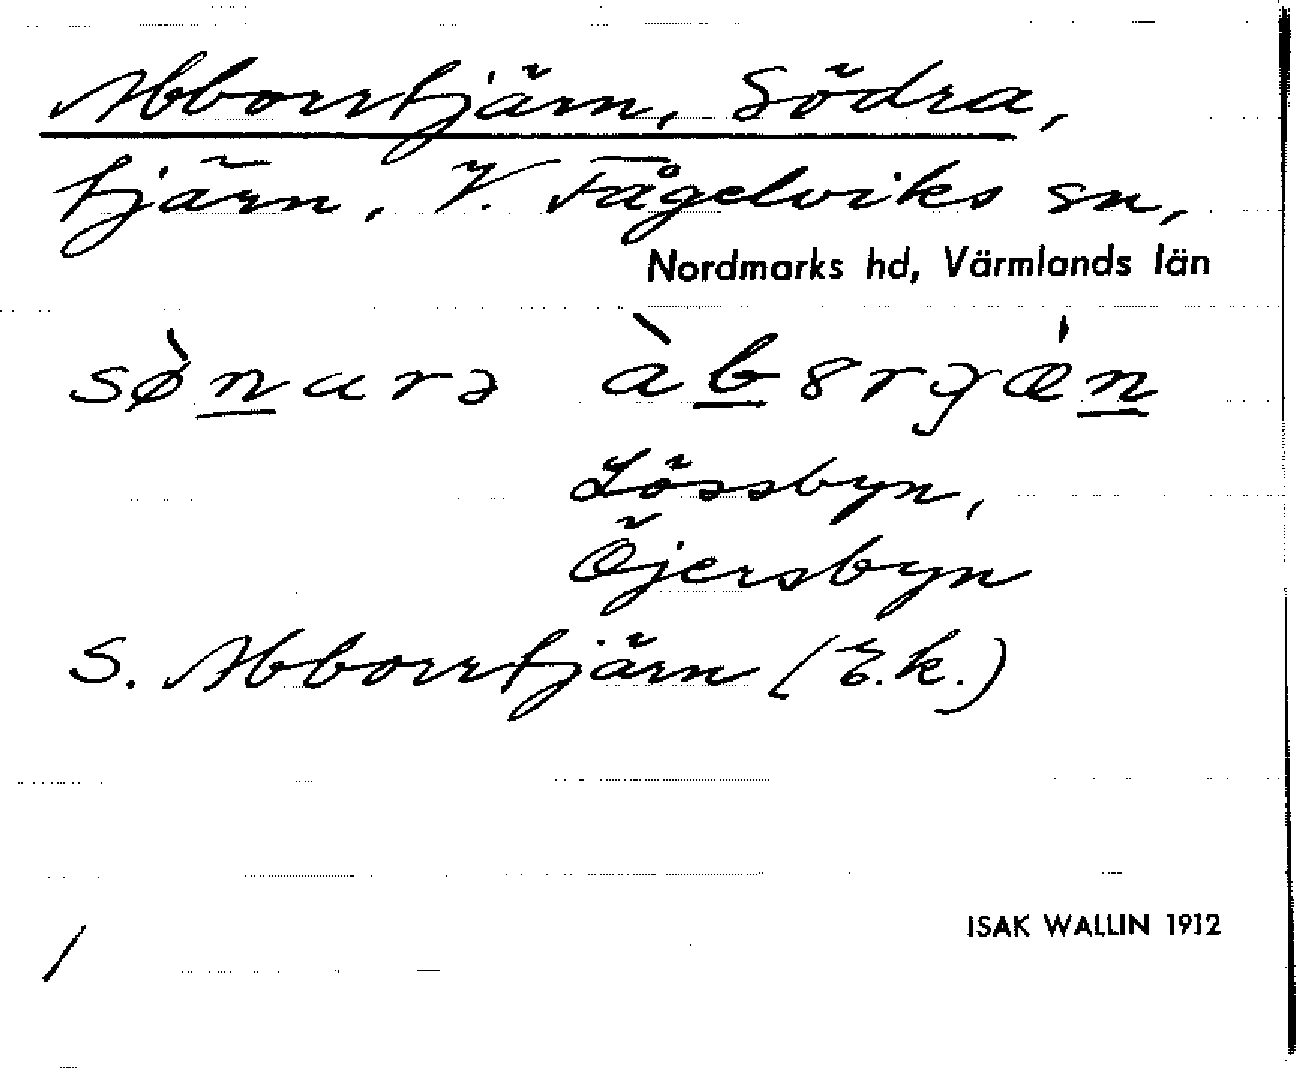 Abborrtjärn, Södra,
tjärn, V. Fågelviks sn,
Nordmarks hd, Värmlands län
sø̀narə àbȣrɟǽn
Lössbyn,
Öjersbyn
S. Abborrtjärn (E.k.)
ISAK WALLIN 1912
/